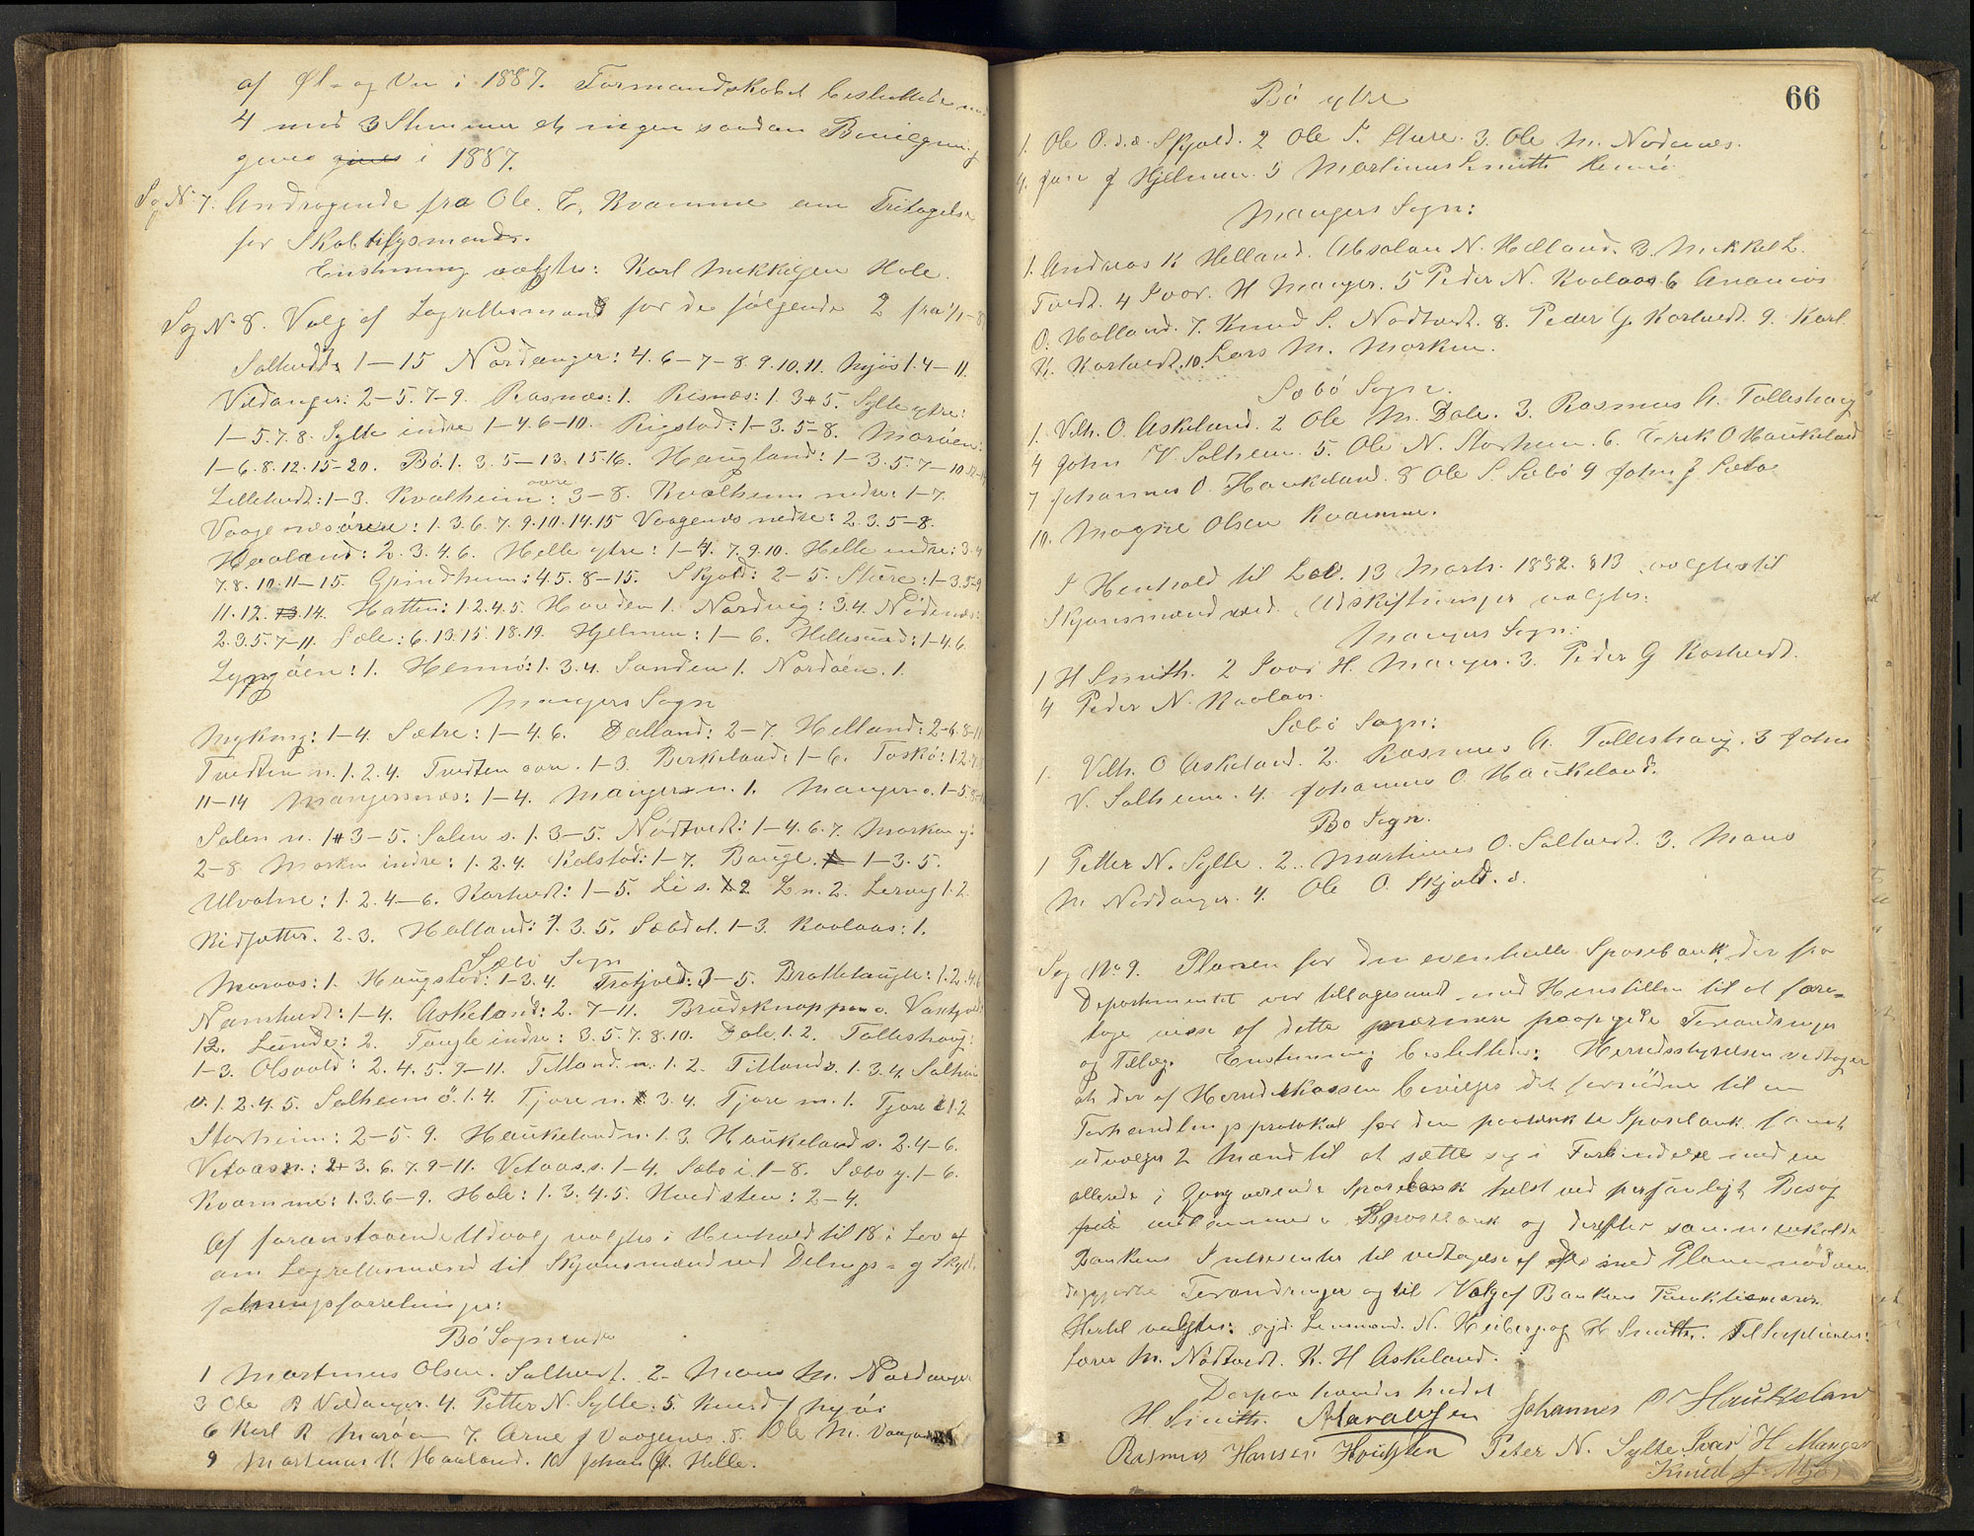 af Øl- og Vin i 1887. Formandskabet besluttede med
4 mod 3 Stemmer at ingen saadan Bevilgning
gives gives i 1887.
Sag No 7. Andragende fra Ole. T. Kvamme om Fritagelse
for Skatteligsmands.
Enstemmig valgtes: Karl Mikkelsen Hole.
Sag No 8. Valg af Lagrettesmænd for de følgende 2 fra 1/1-8
Saltvedt: 1-15 Nordanger: 4. 6-7-8. 9. 10. 11. Mjøs 1. 4-11.
Vildanger: 2-5. 7-9. Rosnæs: 1. Risnæs: 1. 3+5. Sylte ytre:
1-5. 7. 8. Sylte indre 1-4. 6-10. Rigstad: 1-3. 5-8. Marøen:
1-6. 8. 12. 15-20. Bø. 1. 3. 5-13. 15-16. Haugland: 1-3. 5. 7-10.
Lilletvedt: 1-3. Kvalheim øvre: 3-8. Kvalheim nedre: 1-7.
Vaagenæs øvre: 1. 3. 6. 7. 9. 10. 14. 15 Vaagenes nedre: 2. 3. 5-8.
Haaland: 2. 3. 4. 6. Helle ytre: 1-4. 7. 9. 10. Helle indre: 3.
7. 8. 10. 11-15. Grindheim: 4. 5. 8-15. Skjold: 2-5. Sture: 1-3. 5-9
11. 12. 13. 14. Hatten: 1. 2. 4. 5. Hovden 1. Nordvig: 3. 4. Nødenes:
2. 3. 5. 7-11. Sæle: 6. 13. 15. 18. 19. Hjelmen: 1-6. Hillesund: 1-4. 6.
Lyngøen: 1. Hernø: 1. 3. 4. Sanden 1. Nordøen. 1.
Mangers Sogn
Myking: 1-4. Sætre: 1-4. 6. Dalland: 2-7. Helland: 2-6. 8-11
Tvedten n. 1. 2. 4. Tvedten øvre. 1-3. Berkeland: 1-6. Toskø: 1. 2.
11-14 Mangersnæs: 1-4. Manger n. 1. Manger o. 1-5.
Salen n. 1 3-5. Salen s. 1. 3-5. Nødtvedt: 1-4. 6. 7. Morken y:
2-8 Morken indre: 1. 2. 4. Kolstad: 1-7. Bøugl. 1-3. 5.
Ulvatne: 1. 2. 4-6. Kartvedt: 1-5. Li s. 2 L n. 2. Lervig 1. 2.
Ridfætter. 2. 3. Halland: 1. 3. 5. Sæbdal. 1-3. Kvolaas: 1.
Sæbø Sogn
Moraas: 1. Haugstad: 1-3. 4. Trofjeld: 3-5. Brattetaugle: 1. 2. 4.
Namtvedt: 1-4. Askeland: 2. 7-11. Brudeknappen o. Vaxtjeld
12. Lunde: 2. Taugle indre: 3. 5. 7. 8. 10. Dale. 1. 2. Talleshaug:
1-3. Olsvold: 2. 4. 5. 9-11. Titland n. 1. 2. Titland s. 1. 3. 4. Solheim
v. 1. 2. 4. 5. Solheim ö. 1. 4. Tjore n. 3. 4. Tjore m. 1. Tjore 1. 2
Storheim: 2-5. 9. Haukeland n. 1. 3. Haukeland s. 2. 4-6.
Vetaas n.: 2+3. 6. 7. 9-11. Vetaas. s. 1-4. Sæbø i. 1-8. Sæbø y. 1-6.
Kvamme: 1. 3. 6-9. Hole: 1. 3. 4. 5. Hvedsten: 2-4.
Af foranstaaende Udvalg valgtes i Henhold til 18 i Lov af
om Lagrettesmænd til Skjønsmænd ved Delings- og Skyld-
sætningsforretninger:
Bø Sogn indre
1 Martinus Olsen. Saltvedt. 2. Mons M. Nordanger
3 Ole R Vildanger. 4. Petter N. Sylte. 5. Knud J Mjøs
6 Karl R Marøen 7. Arne J Vaagenes. 8. Ole M. Vaagenes
9 Martinus K Haaland. 10 Johan Helle.
66
Bø ytre
1. Ole O. d.æ. Skjold. 2 Ole P. Sture. 3. Ole M. Nødenes.
4. Jan J Hjelmen. 5 Martinus Smitth Hernø
Mangers Sogn:
1. Andreas K Helland. Absolon N. Helland. 3. Mikkel L.
Tvedt. 4 Ivar. H Manger. 5 Peder N. Kvolaas 6 Ananias
O. Halland. 7. Knud S. Nødtvedt. 8. Peder G. Kartvedt. 9. Karl
K. Kartvedt. 10. Lars M. Morken.
Sæbø Sogn.
1. Vilh. O. Askeland. 2 Ole M. Dale. 3. Rasmus A. Talleshaug
4 John V Solheim. 5. Ole N. Storheim. 6. Erik O Haukeland
7 Johannes O. Haukeland. 8 Ole S. Sæbø 9 John J Sæbø
10. Magne Olsen Kvamme.
I Henhold til Lov. 13 Marts. 1882. § 13 valgtes til
Skjønsmænd ved Udskiftninger valgtes:
Mangers Sogn:
1 H Smith. 2 Ivar H. Manger. 3. Peder G Kartvedt.
4 Peder N. Kvolaas.
Sæbø Sogn:
1. Vilh. O Askeland. 2. Rasmus A. Talleshaug. 3 John
V. Solheim. 4. Johannes O. Haukeland.
Bø Sogn.
1 Petter N. Sylte. 2. Martinus O. Saltvedt. 3. Mons
M. Nordanger. 4. Ole O. Skjold. d.
Sag No 9. Planen for den eventuelle Sparebank, der fra
Departementet var tilbagesendt med Henstillen til at fore-
tage visse af dette nærmere paapegede Forandringer
og Tillæg. Enstemmig besluttedes: Herredsstyrelsen vedtager
at der af Herredskassen bevilges det fornødne til en
Forhandlingsprotokol for den paatænkte Sparebank samt
udvælger 2 Mænd til at sætte sig i Forbindelse med en
allerede i Gang værende Sparebank helst ved personligt Besøg
Sparebank og derefter sammenkalde
Bankens Interesenter til vedtagelse af de med Planen nødven
diggjorte Forandringer og til Valg af Bankens Funktionærer.
Hertil valgtes: Lensmand. N. Heiberg og H Smitth. Til Suplean
terer M. Nødtvedt. K. H Askeland.
Derpaa hævedes Mødet
H Smith. Johannes O Haukeland
Rasmus Hansen Peter N. Sylte Ivar H. Manger
Knud J. Mjøs